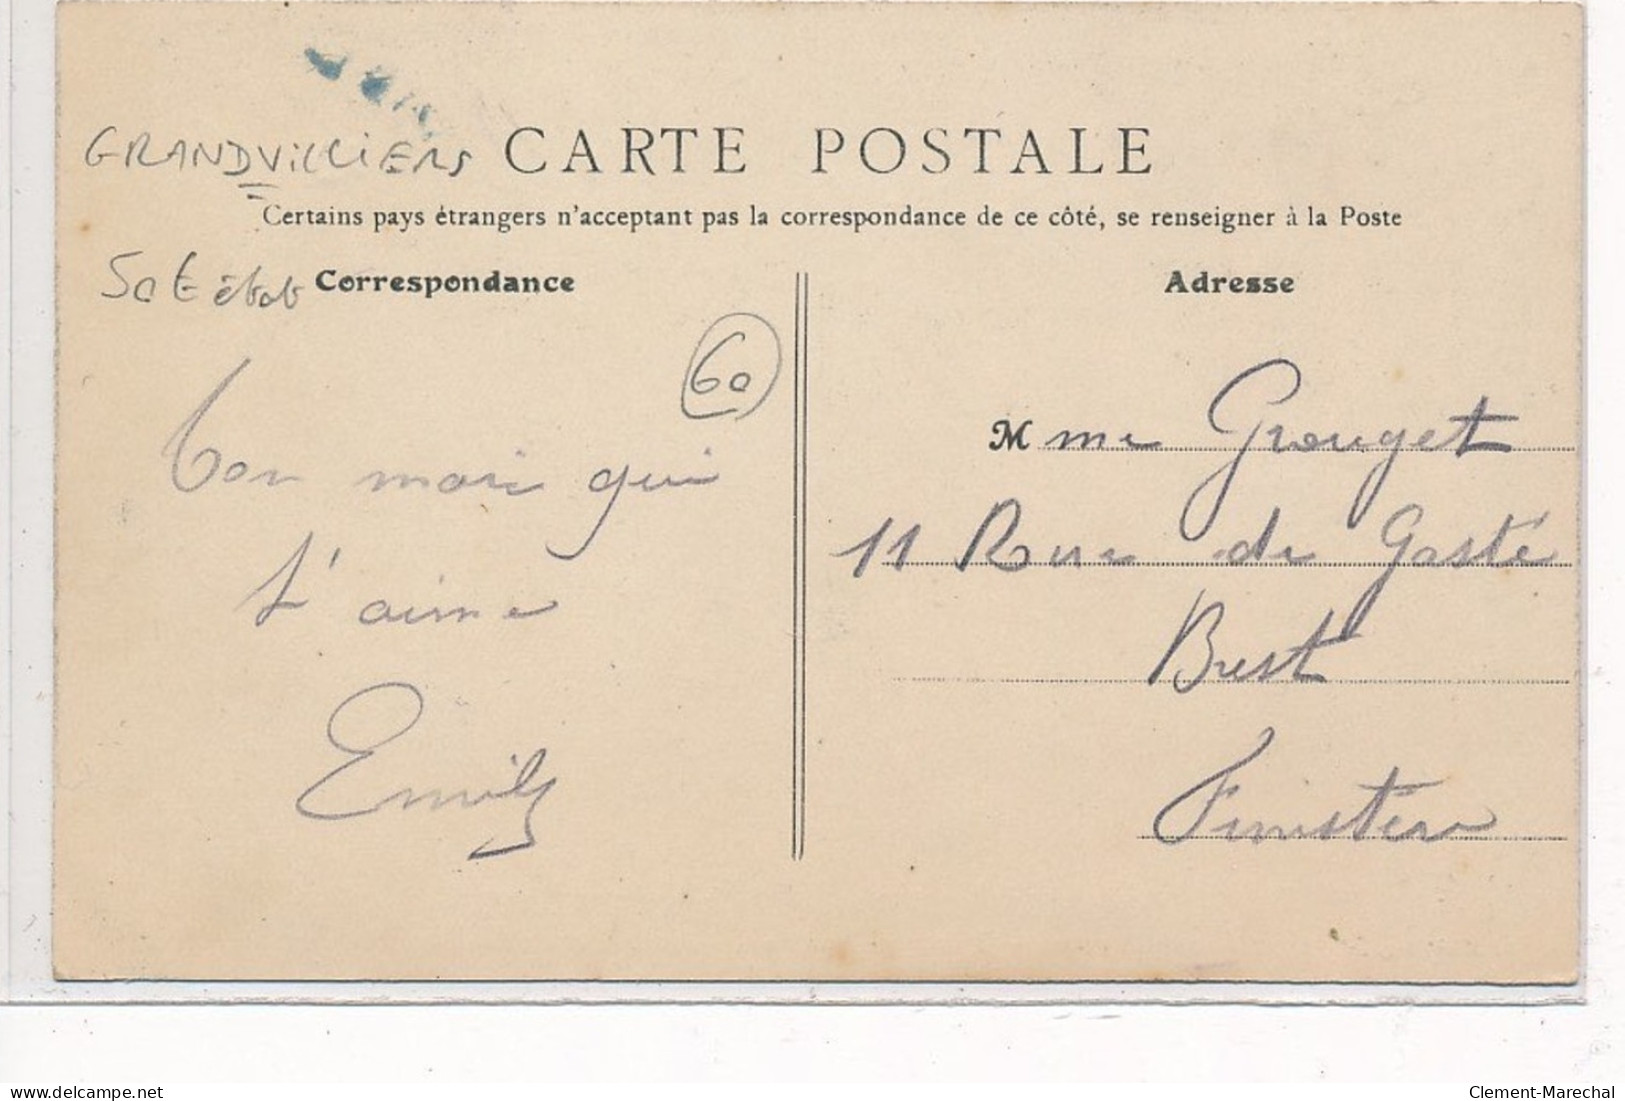 GRANDVILLIERS
CARTE POSTALE
Certains pays étrangers n'acceptant pas la correspondance de ce côté, se renseigner à la Poste
Correspondance
Adresse
60
Ton mari qui
t'aime
Emile
Mme Grouget
11 Rue de Gasté
Brest
Finistère
delcampe.net
Clement-Marechal